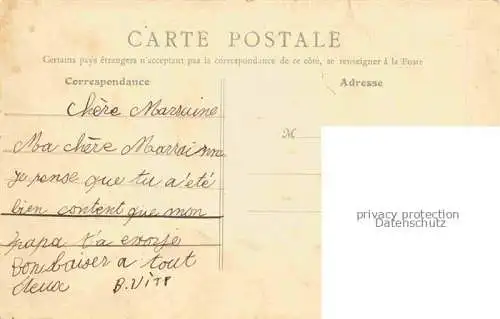 CARTE POSTALE
Certains pays étrangers n'acceptant pas la correspondance de ce côté, se renseigner à la Poste
Correspondance
Adresse
chère Marraine
Ma chère Marraine
je pense que tu a été
bien content que mon
papa t'a
Bon baiser a tout
deux B. Vitt
M
privacy protection
Datenschutz